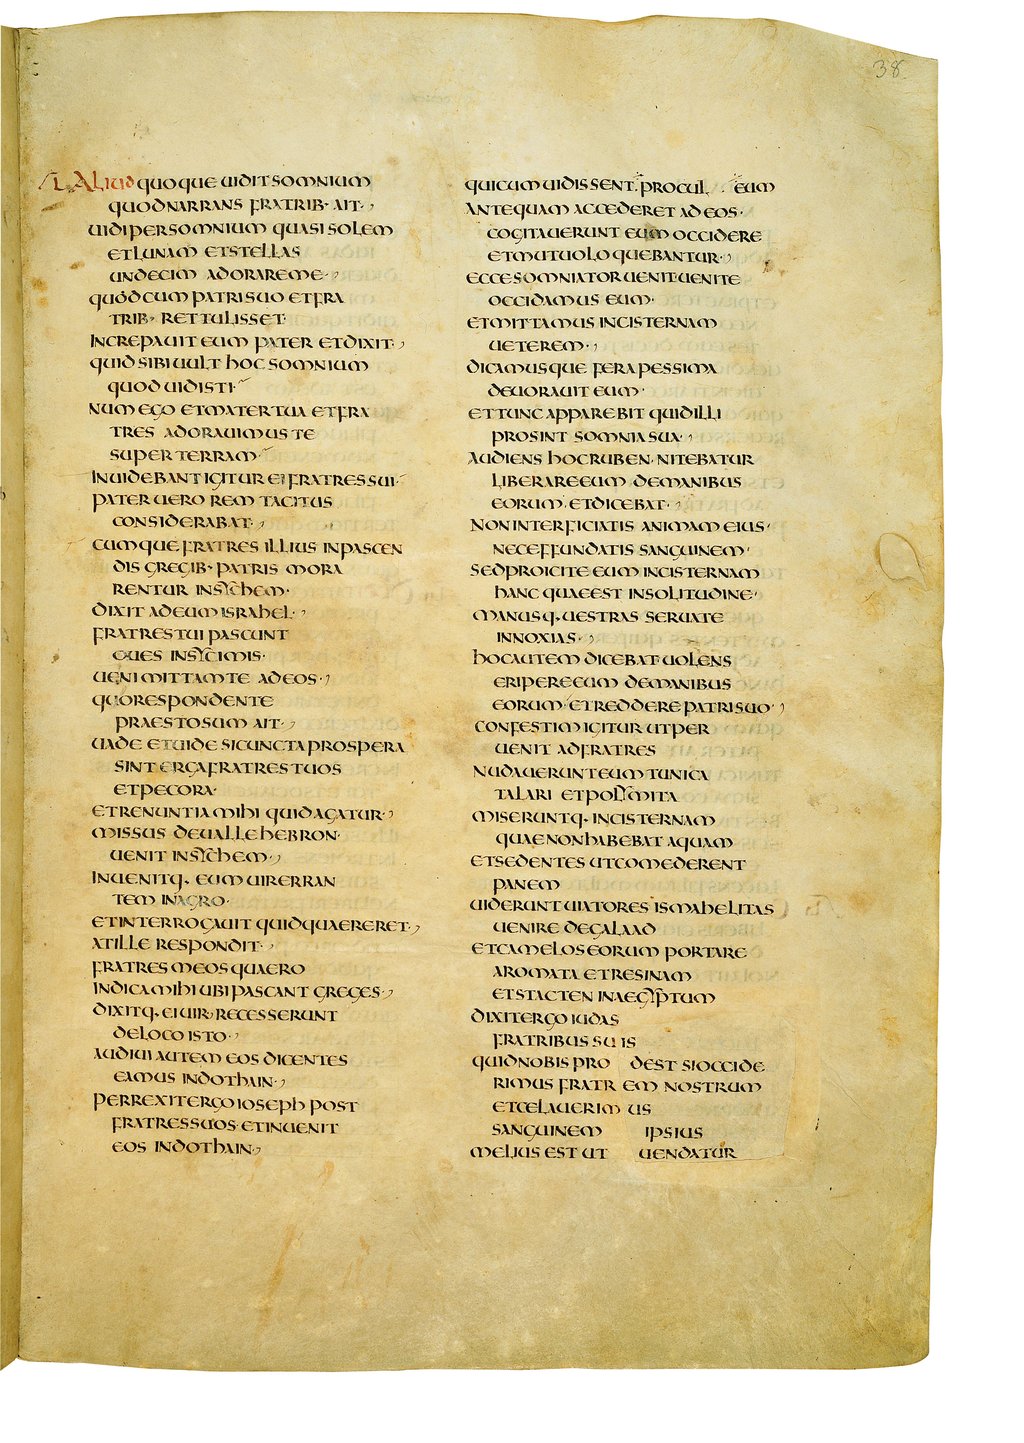 38
L ALIUD QUOQUE UIDIT SOMNIUM
QUOD NARRANS FRATRIB· AIT·,
UIDI PER SOMNIUM QUASI SOLEM
ET LUNAM ET STELLAS
UNDECIM ADORARE ME·,
QUOD CUM PATRI SUO ET FRA
TRIB· RETTULISSET·
INCREPAUIT EUM PATER ET DIXIT·,
QUID SIBI UULT HOC SOMNIUM
QUOD UIDISTI·
NUM EGO ET MATER TUA ET FRA
TRES ADORAUIMUS TE
SUPER TERRAM·
INUIDEBANT IGITUR EI FRATRES SUI·
PATER UERO REM TACITUS
CONSIDERABAT·,
CUMQUE FRATRES ILLIUS IN PASCEN
DIS GREGIB· PATRIS MORA
RENTUR IN SYCHEM·
DIXIT AD EUM ISRAHEL·,
FRATRES TUI PASCUNT
OUES IN SYCIMIS·
UENI MITTAM TE AD EOS·,
QUO RESPONDENTE
PRAESTO SUM AIT·,
UADE ET UIDE SI CUNCTA PROSPERA
SINT ERGA FRATRES TUOS
ET PECORA·
ET RENUNTIA MIHI QUID AGATUR·,
MISSUS DE UALLE HEBRON·
UENIT IN SYCHEM·,
INUENITQ· EUM UIR ERRAN
TEM IN AGRO·
ET INTERROGAUIT QUID QUAERERET·,
AT ILLE RESPONDIT·,
FRATRES MEOS QUAERO
INDICA MIHI UBI PASCANT GREGES·,
DIXITQ· EI UIR· RECESSERUNT
DE LOCO ISTO·,
AUDIUI AUTEM EOS DICENTES
EAMUS IN DOTHAIN·,
PERREXIT ERGO IOSEPH POST
FRATRES SUOS· ET INUENIT
EOS IN DOTHAIN·,
QUI CUM UIDISSENT· PROCUL· EUM
ANTEQUAM ACCEDERET AD EOS·
COGITAUERUNT EUM OCCIDERE
ET MUTUO LOQUEBANTUR·,
ECCE SOMNIATOR UENIT· UENITE
OCCIDAMUS EUM·
ET MITTAMUS IN CISTERNAM
UETEREM·,
DICAMUSQUE FERA PESSIMA
DEUORAUIT EUM·
ET TUNC APPAREBIT QUID ILLI
PROSINT SOMNIA SUA·,
AUDIENS HOC RUBEN· NITEBATUR
LIBERARE EUM DE MANIBUS
EORUM· ET DICEBAT·,
NON INTERFICIATIS ANIMAM EIUS·
NEC EFFUNDATIS SANGUINEM·
SED PROICITE EUM IN CISTERNAM
HANC QUAE EST IN SOLITUDINE·
MANUSQ· UESTRAS SERUATE
INNOXIAS·,
HOC AUTEM DICEBAT· UOLENS
ERIPERE EUM DE MANIBUS
EORUM· ET REDDERE PATRI SUO·,
CONFESTIM IGITUR UT PER
UENIT AD FRATRES
NUDAUERUNT EUM TUNICA
TALARI ET POLYMITA
MISERUNTQ· IN CISTERNAM
QUAE NON HABEBAT AQUAM
ET SEDENTES UT COMEDERENT
PANEM
UIDERUNT UIATORES ISMAHELITAS
UENIRE DE GALAAD
ET CAMELOS EORUM PORTARE
AROMATA ET RESINAM
ET STACTEN IN AEGYPTUM
DIXIT ERGO IUDAS
FRATRIBUS SUIS
QUID NOBIS PRODEST SI OCCIDE
RIMUS FRATREM NOSTRUM
ET CELAUERIMUS
SANGUINEM IPSIUS
MELIUS EST UT UENDATUR